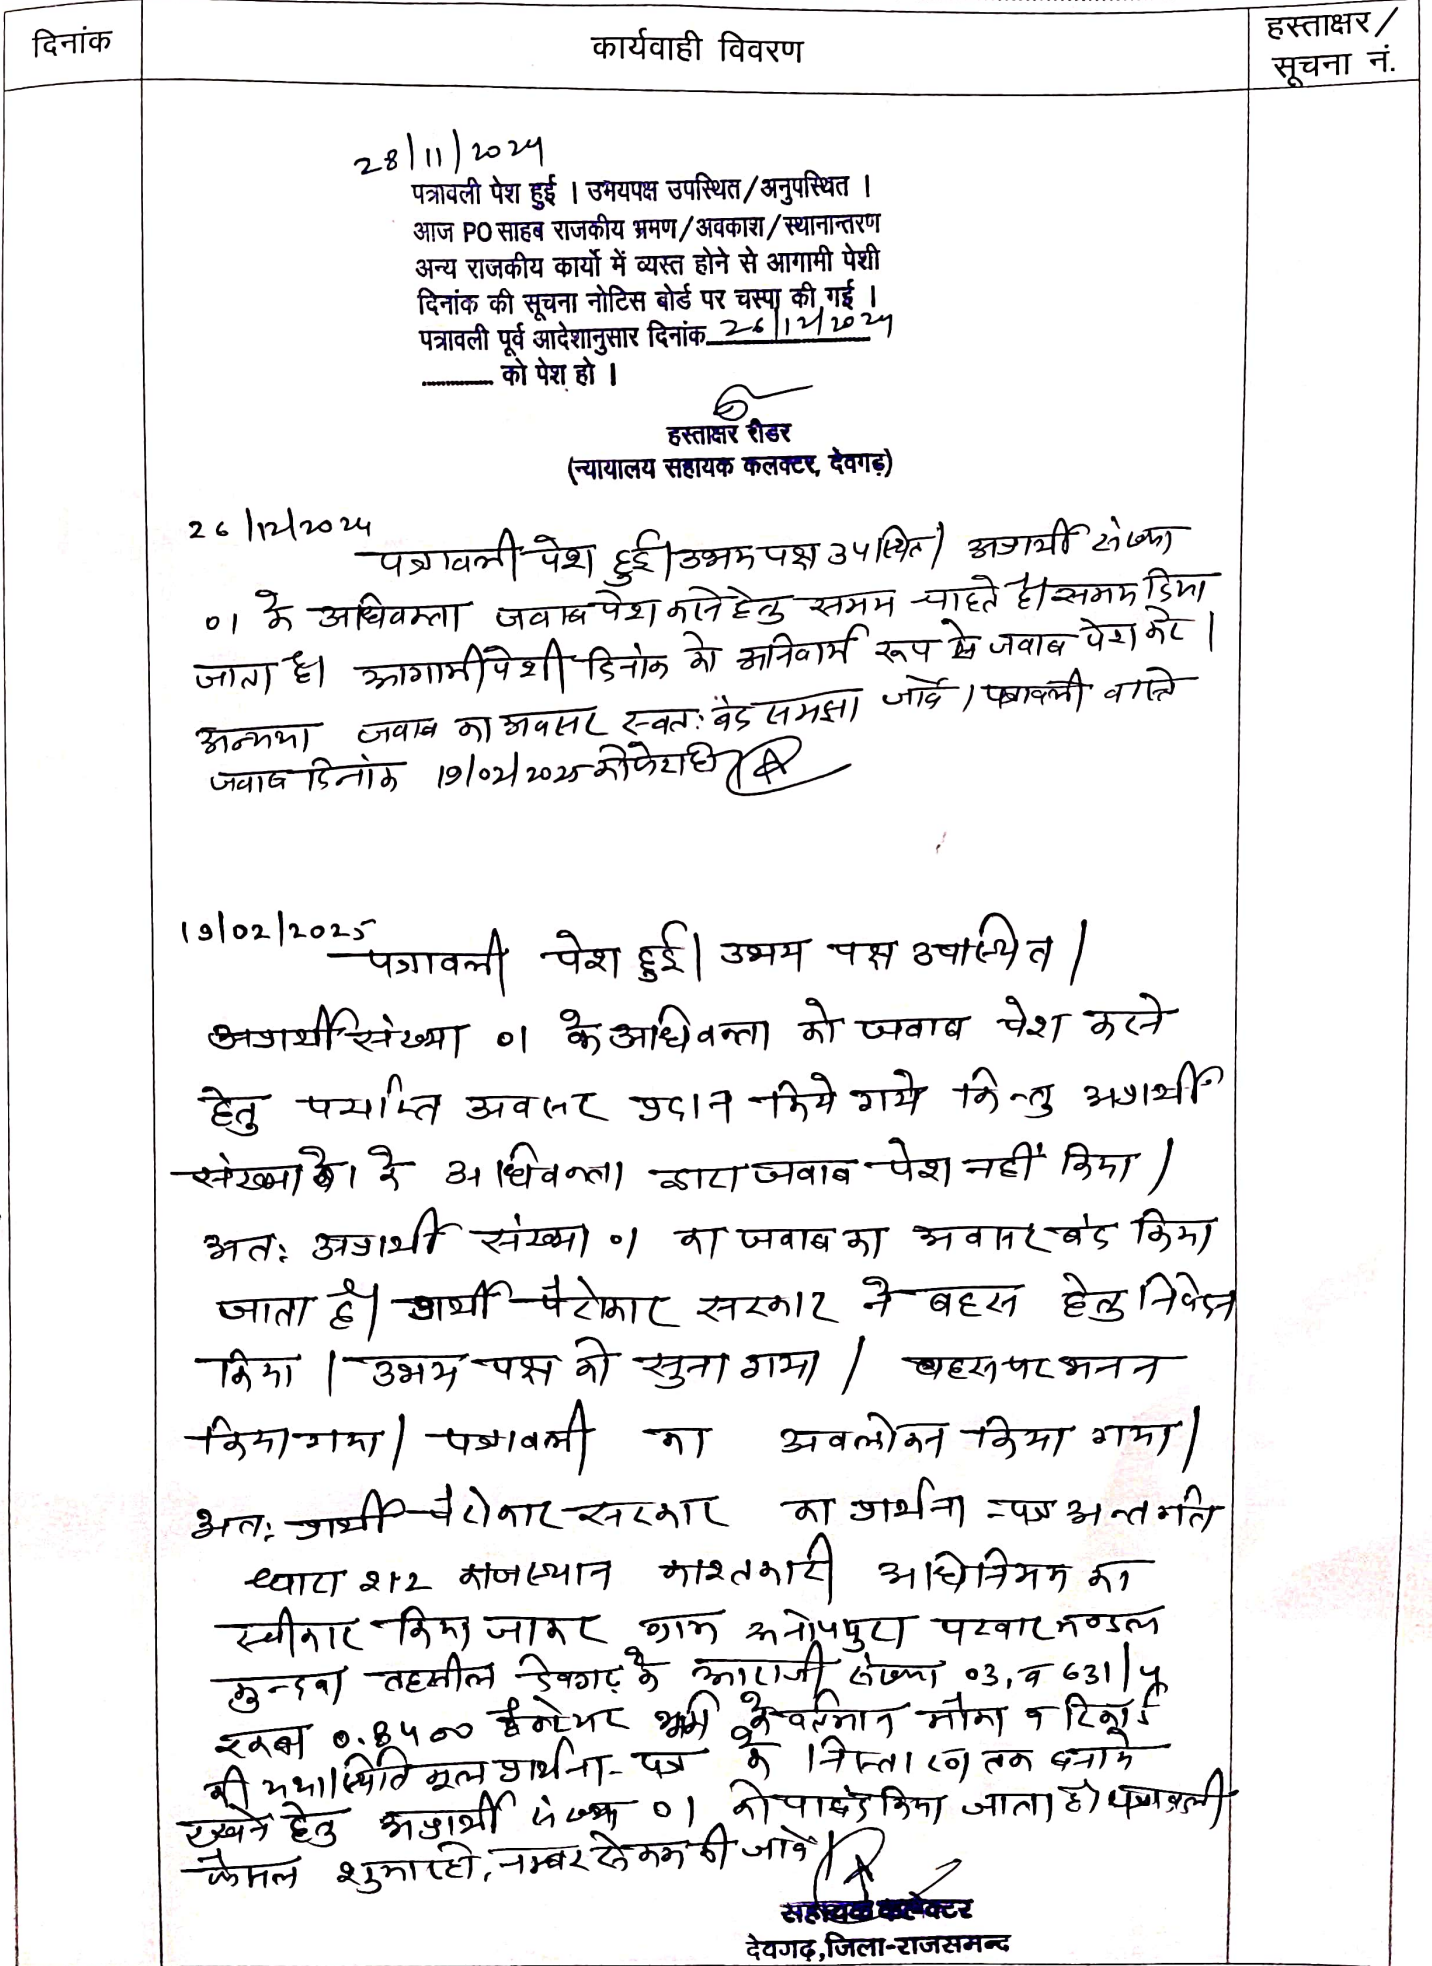 दिनांक
कार्यवाही विवरण
हस्ताक्षर/
सूचना नं.
28/11/2024
पत्रावली पेश हुई । उभयपक्ष उपस्थित/अनुपस्थित ।
आज PO साहब राजकीय भ्रमण/अवकाश/स्थानान्तरण
अन्य राजकीय कार्यो में व्यस्त होने से आगामी पेशी
दिनांक की सूचना नोटिस बोर्ड पर चस्पा की गई ।
पत्रावली पूर्व आदेशानुसार दिनांक 26/12/2024
को पेश हो ।
हस्ताक्षर रीडर
(न्यायालय सहायक कलक्टर, देवगढ़)
26/12/2024
पत्रावली पेश हुई। उभय पक्ष उपस्थित। अप्रार्थी संख्या
01 के अधिवक्ता जवाब पेश करने हेतु समय चाहते है। समय दिया
जाता है। आगामी पेशी दिनांक को अनिवार्य रूप से जवाब पेश करे।
अन्यथा जवाब का अवसर स्वत: बंद समझा जावे। पत्रावली वास्ते
जवाब दिनांक 19/02/2025 को पेश हो।
19/02/2025
पत्रावली पेश हुई। उभय पक्ष उपस्थित।
अप्रार्थी संख्या 01 के अधिवक्ता को जवाब पेश करने
हेतु पर्याप्त अवसर प्रदान किये गये किन्तु अप्रार्थी
संख्या 01 के अधिवक्ता द्वारा जवाब पेश नहीं किया।
अत: अप्रार्थी संख्या 01 का जवाब का अवसर बंद किया
जाता है। प्रार्थी पैरोकार सरकार ने बहस हेतु निवेदन
किया। उभय पक्ष को सुना गया। बहस पर मनन
किया गया। पत्रावली का अवलोकन किया गया।
अत: प्रार्थी पैरोकार सरकार का प्रार्थना-पत्र अन्तर्गत
धारा 212 राजस्थान काश्तकारी अधिनियम का
स्वीकार किया जाकर ग्राम अनोपपुरा पटवार मण्डल
कुन्दवा तहसील देवगढ़ के आराजी संख्या 03, व 631/
रकबा 0.8400 हैक्टेयर भूमि के वर्तमान मौका व रिकॉर्ड
की यथास्थिति मूल प्रार्थना-पत्र के निस्तारण तक बनाये
रखने हेतु अप्रार्थी संख्या 01 को पाबंद किया जाता है। पत्रावली
फैसल शुमार हो, नम्बर से कम की जावे।
सहायक कलेक्टर
देवगढ़,जिला-राजसमन्द